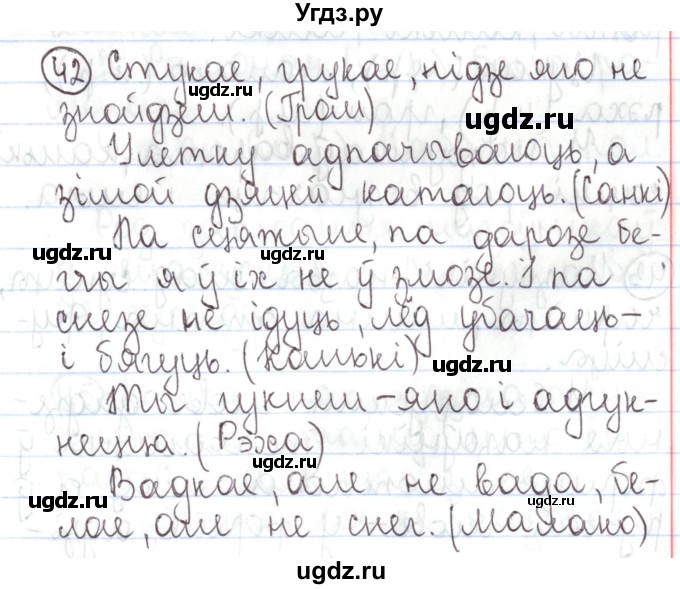 Угдз.ру
42 Стукае, грукае, нідзе яго не
знойдзеш. (Гром)
Улетку адпачываюць, а
зімой дзяцей катаюць. (Санкі)
Па сцяжыне, па дарозе бе-
гчы я ў іх не ў змозе. І па
снезе не ідуць, лёд убачаць -
і бягуць. (Канькі)
Ты гукнеш - яно і адгук-
нецца. (Рэха)
Вадкае, але не вада, бе-
лае, але не снег. (Малако)
ugdz.ru
ugdz.ru
ugdz.ru
ugdz.ru
ugdz.ru
ugdz.ru
ugdz.ru
ugdz.ru
ugdz.ru
ugdz.ru
ugdz.ru
ugdz.ru